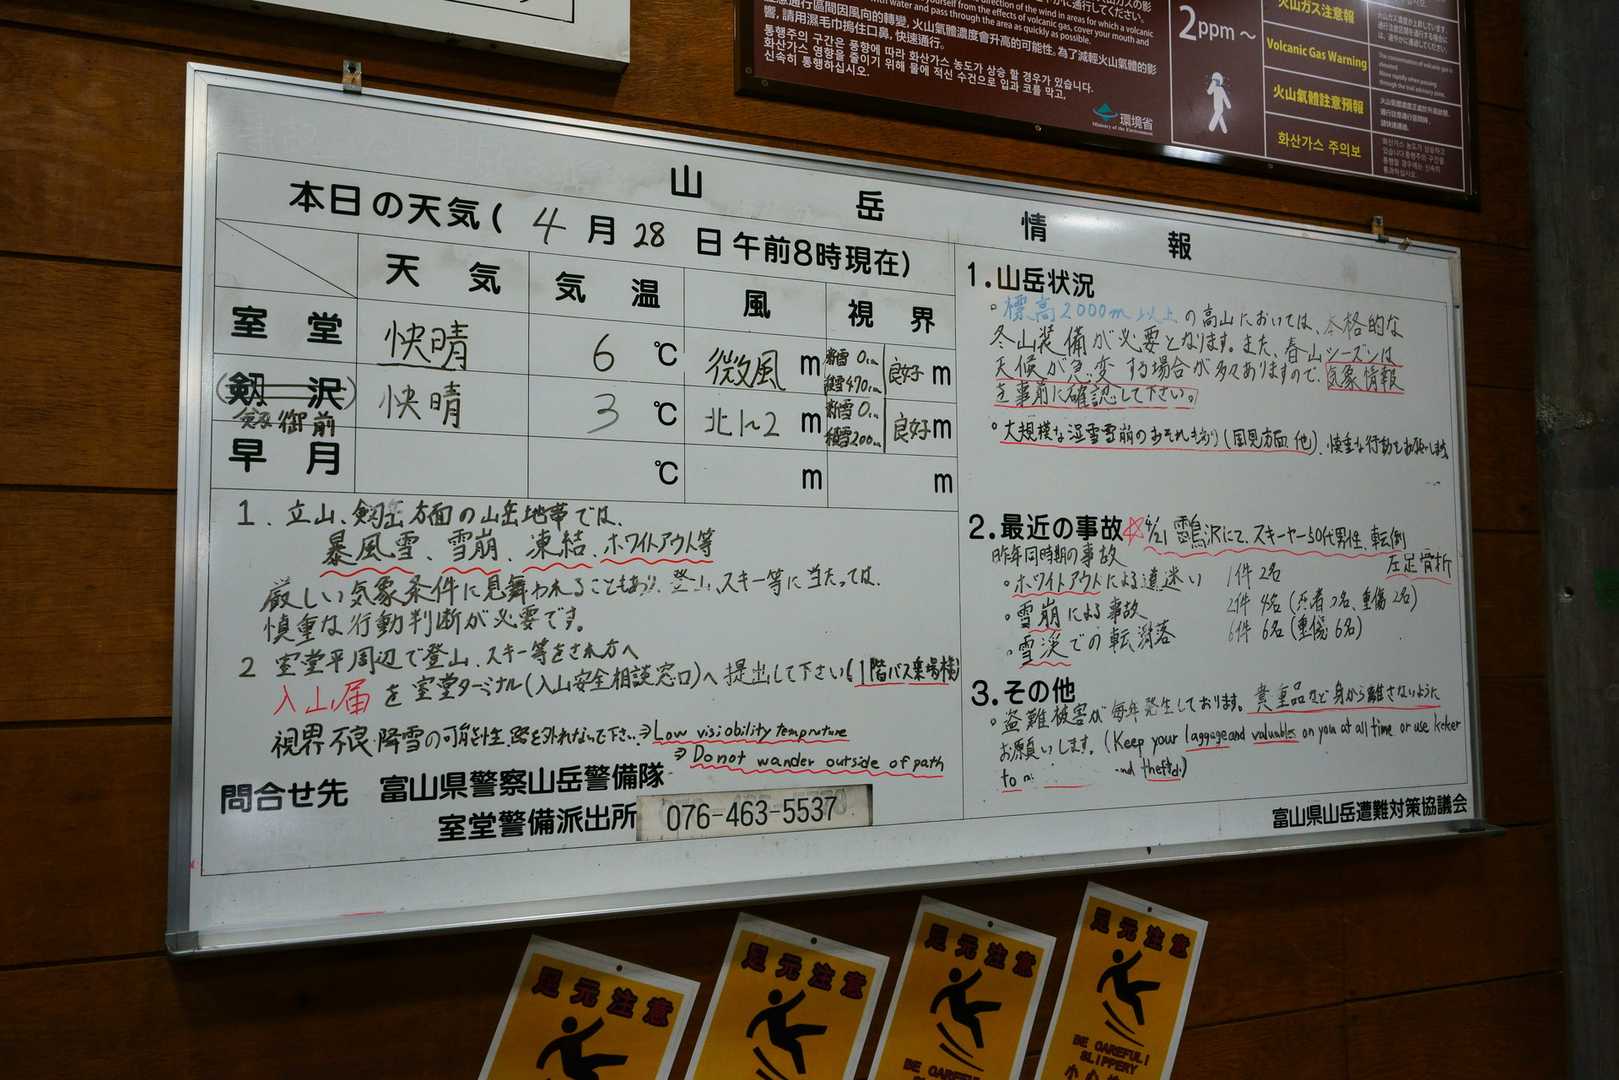 めに通行してください。
direction of the wind in areas for which a volcanic
yourself from the effects of volcanic gas, cover your mouth and
with water and pass through the area as quickly as possible.
通行區間因風向的轉變,火山氣體濃度會升高的可能性。為了減輕火山氣體的影
響,請用濕毛巾摀住口鼻,快速通行。
통행주의 구간은 풍향에 따라 화산가스 농도가 상승 할 경우가 있습니다.
화산가스 영향을 줄이기 위해 물에 적신 수건으로 입과 코를 막고,
신속히 통행하십시오.
環境省
Ministry of the Environment
2ppm～
火山ガス注意報
Volcanic Gas Warning
火山氣體註意預報
화산가스 주의보
山岳情報
本日の天気( 4月28日午前8時現在)
天気 気温 風 視界
室堂 快晴 6℃ 微風 m 新雪 0cm 積雪470cm 良好 m
(剱沢) 剱御前 快晴 3℃ 北1~2 m 新雪 0cm 積雪200cm 良好 m
早月 ℃ m m
1. 立山、剱岳方面の山岳地帯では、
暴風雪、雪崩、凍結、ホワイトアウト等
厳しい気象条件に見舞われることもあり、登山、スキー等に当たっては、
慎重な行動判断が必要です。
2 室堂平周辺で登山、スキー等をされる方へ
入山届を室堂ターミナル(入山安全相談窓口)へ提出して下さい(1階バス乗場横)
視界不良・降雪の可能性、路を外れないで下さい。⇒Low visiobility temprature
⇒Do not wander outside of path
問合せ先 富山県警察山岳警備隊
室堂警備派出所 076-463-5537
1.山岳状況
・標高2000m以上の高山においては、本格的な
冬山装備が必要となります。また、春山シーズンは
天候が急変する場合が多々ありますので、気象情報
を事前に確認して下さい。
・大規模な湿雪雪崩のおそれもあり(国見方面 他)、慎重な行動をお願いします
2.最近の事故☆4/21 雷鳥沢にて、スキーヤー50代男性、転倒
左足骨折
昨年同時期の事故
・ホワイトアウトによる道迷い 1件 2名
・雪崩による事故 2件 4名(死者2名、重傷2名)
・雪渓での転滑落 6件 6名(重傷6名)
3.その他
・盗難被害が毎年発生しております。貴重品など身から離さないように
お願いします。(Keep your laggage and valuables on you at all time or use koker
to theftd.)
富山県山岳遭難対策協議会
足元注意
足元注意
足元注意
BE CAREFUL!
足元注意
BE CAREFUL!
SLIPPERY
小心